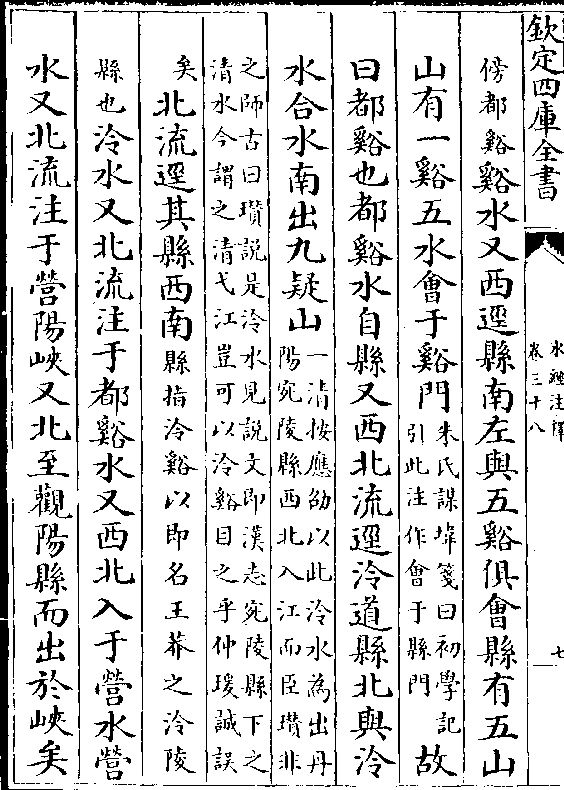 欽定四庫全書
水經注釋
卷三十八
七
傍都谿谿水又西逕縣南左與五谿俱會縣有五山
山有一谿五水會于谿門朱氏謀㙔箋曰初學記引此注作會于縣門故
曰都谿也都谿水自縣又西北流逕泠道縣北與泠
水合水南出九疑山一清按應劭以此泠水為出丹陽宛陵縣西北入江而臣瓚非
之師古曰瓚說是泠水見說文即漢志宛陵縣下之清水今謂之清弋江豈可以泠谿目之乎仲瑗誠誤
矣北流逕其縣西南縣指泠谿以即名王莽之泠陵
縣也泠水又北流注于都谿水又西北入于營水營
水又北流注于營陽峽又北至觀陽縣而出於峽矣